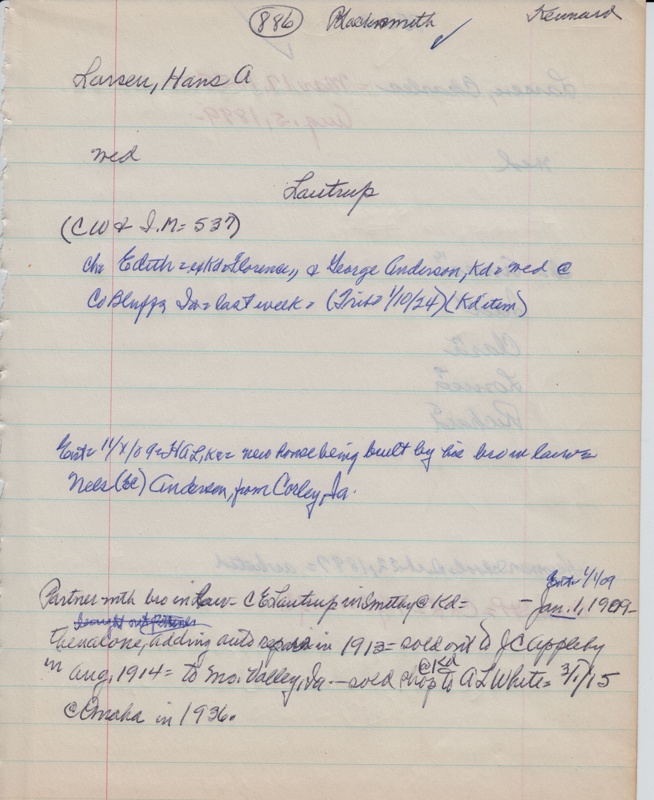 886 Blacksmith ✓ Kennard
Larsen, Hans A
wed
Lautrup
(CW & I.M= 537)
ch= Edith = of Kd = Florence,, & George Anderson, Kd = wed @
Co Bluffs, Ia = last week = (Trib= 1/10/24) (Kd item)
Ent= 11/ /09 = HAL, Kd = new house being built by his bro in law =
Nels ( ) Anderson, from Corley, Ia.
Ent= 1/1/09
Partner with bro in Law = C E Lautrup in Smithy @ Kd = - Jan. 1, 1909 -
then alone, adding auto repair in 1913 = sold out to J C Appleby
in Aug, 1914 = to Mo. Valley, Ia - sold shop @ Kd to A L White = 3/1/15
@ Omaha in 1936.